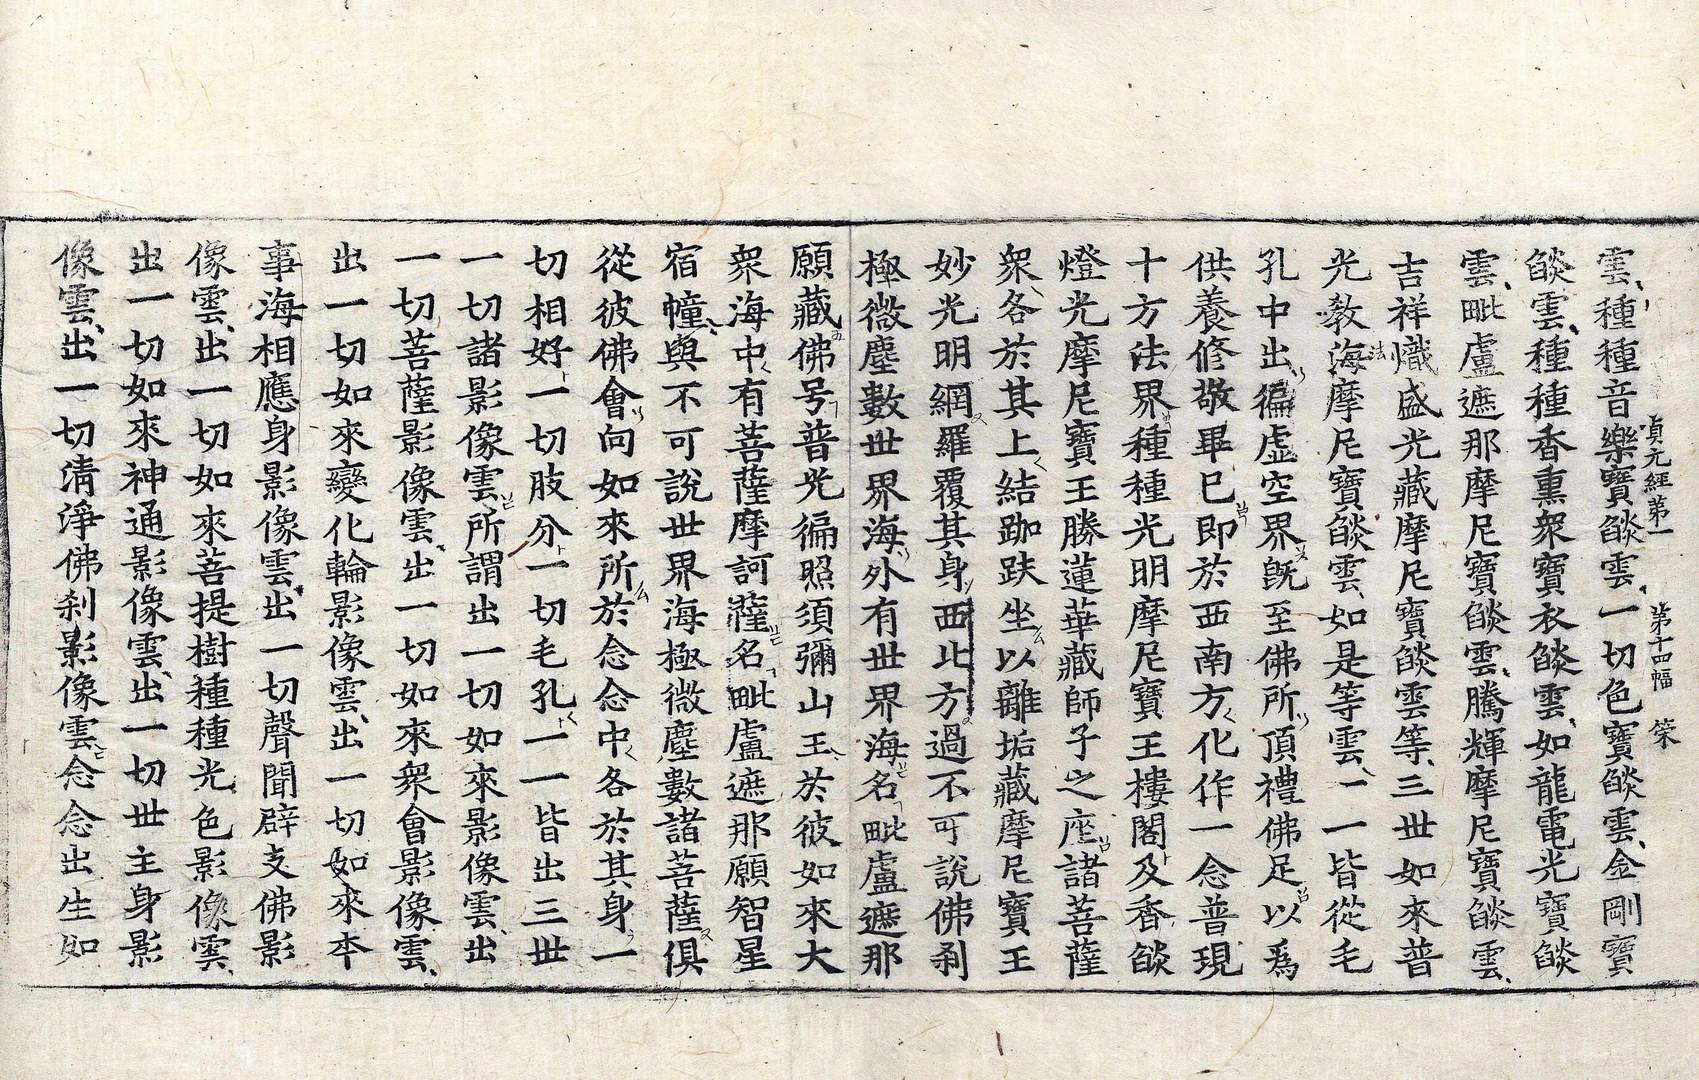 貞元經第一　第十四幅　榮
雲種種音樂寶燄雲一切色寶燄雲金剛寶
燄雲種種香熏衆寶衣燄雲如龍電光寶燄
雲毗盧遮那摩尼寶燄雲騰輝摩尼寶燄雲
吉祥熾盛光藏摩尼寶燄雲等三世如來普
光教海摩尼寶燄雲如是等雲一一皆從毛
孔中出徧虛空界旣至佛所頂禮佛足以爲
供養修敬畢已即於西南方化作一念普現
十方法界種種光明摩尼寶王樓閣及香燄
燈光摩尼寶王勝蓮華藏師子之座諸菩薩
衆各於其上結跏趺坐以離垢藏摩尼寶王
妙光明網羅覆其身西北方過不可說佛剎
極微塵數世界海外有世界海名毗盧遮那
願藏佛号普光徧照須彌山王於彼如來大
衆海中有菩薩摩訶薩名毗盧遮那願智星
宿幢與不可說世界海極微塵數諸菩薩俱
從彼佛會向如來所於念念中各於其身一
切相好一切肢分一切毛孔一一皆出三世
一切諸影像雲所謂出一切如來影像雲出
一切菩薩影像雲出一切如來衆會影像雲
出一切如來變化輪影像雲出一切如來本
事海相應身影像雲出一切聲聞辟支佛影
像雲出一切如來菩提樹種種光色影像雲
出一切如來神通影像雲出一切世主身影
像雲出一切清淨佛剎影像雲念念出生如